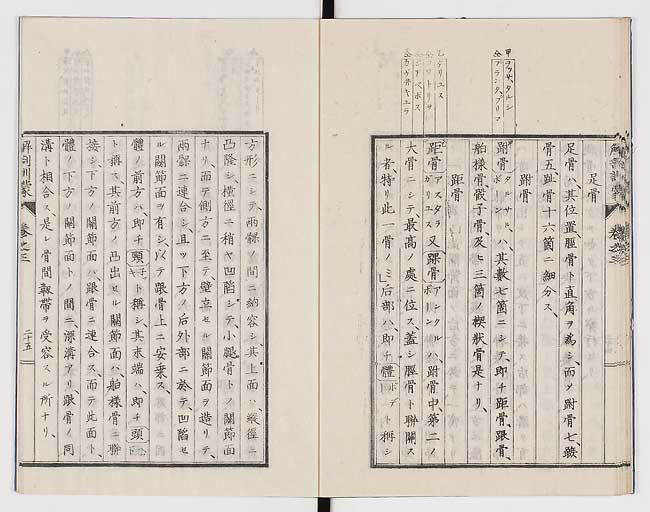 足骨
足骨ハ、其位置、脛骨ト直角ヲ為シ、而ノ跗骨七、蹠
骨五、趾骨十六箇ニ細分ス、
跗骨
跗骨 タルサル ボーン ハ、其數七箇ニシテ、即チ距骨、跟骨、
舶樣骨、骰子骨及ヒ三箇ノ楔狀骨是ナリ、
距骨
距骨 アスタラガリユス 又 踝骨 アンクルボーン ハ、跗骨中、第二ノ
大骨ニシテ、最高ノ處ニ位ス、蓋シ脛骨ト聯關ス
ル者、特リ此一骨ノミ、后部ハ、即チ體 ボデ ト稱シ
方形ニシテ、兩髁ノ間ニ納容シ、其上面ハ、縱徑ニ
凸隆シ、橫徑ニ稍ヤ凹陷シテ、小腿骨トノ關節面
ナリ、而テ側方ニ至テ、壁立セル關節面ヲ造リテ、
兩髁ニ連合シ、且ツ下方ノ后外部ニ於テ、凹陷セ
ル關節面ヲ有シ、以テ跟骨上ニ安乗ス、
體ノ前方ハ、即チ頸 ト稱シ、其末端ハ、即チ頭
ト稱ス、其前方ノ凸出セル關節面ハ、舶樣骨ニ聯
接シ、下方ノ關節面ハ、跟骨ニ連合ス、而テ此面ト、
體ノ下方ノ關節面トノ間ニ、深溝アリ、跟骨ノ同
溝ト相合ス、是レ骨間靱帶ヲ受容スル所ナリ、
解剖訓蒙
卷之三
二十五